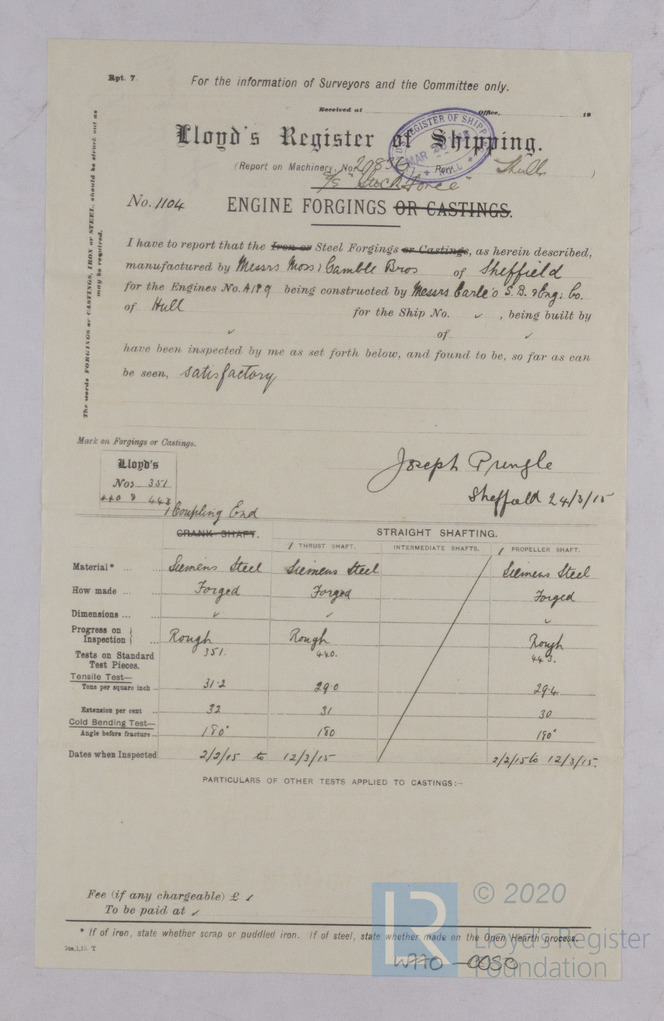 Rpt. 7.
For the information of Surveyors and the Committee only.
Received at Office, 19
Lloyd's Register of Shipping.
REGISTER OF SHIPP MAR HULL
(Report on Machinery, No. Port Hull )
S/S "Stockforce"
No. 1104 ENGINE FORGINGS OR CASTINGS.
The words FORGINGS or CASTINGS, IRON or STEEL, should be struck out as may be required.
I have to report that the Iron or Steel Forgings or Castings, as herein described,
manufactured by Messrs Moss & Gamble Bros of Sheffield
for the Engines No. A189 being constructed by Messrs Earle's S.B. & Eng. Co.
of Hull for the Ship No. ✓ , being built by
✓ of ✓
have been inspected by me as set forth below, and found to be, so far as can
be seen, satisfactory
Mark on Forgings or Castings.
Lloyd's
Nos 351
440 & 443
Joseph Pringle
Sheffield 24/3/15
1 Coupling End
CRANK SHAFT. STRAIGHT SHAFTING.
1 THRUST SHAFT. INTERMEDIATE SHAFTS. 1 PROPELLER SHAFT.
Material* ... Siemens Steel Siemens Steel Siemens Steel
How made ... Forged Forged Forged
Dimensions ... ✓ ✓ ✓
Progress on Inspection ... Rough Rough Rough
Tests on Standard Test Pieces. 351. 440. 443.
Tensile Test—
Tons per square inch ... 31.2 29.0 29.4
Extension per cent 32 31 30
Cold Bending Test—
Angle before fracture ... 180° 180 180°
Dates when Inspected 2/2/15 to 12/3/15 2/2/15 to 12/3/15.
PARTICULARS OF OTHER TESTS APPLIED TO CASTINGS:—
Fee (if any chargeable) £ ✓
To be paid at ✓
* If of iron, state whether scrap or puddled iron. If of steel, state whether made on the Open Hearth process.
LR
© 2020
Lloyd's Register
Foundation